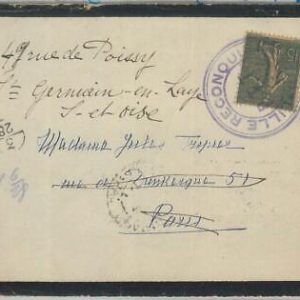 49 rue de Poissy
St Germain-en-Laye
S-et-oise
Madame Jules
rue de Dunkerque 51
Paris
LLE RECONQU
15